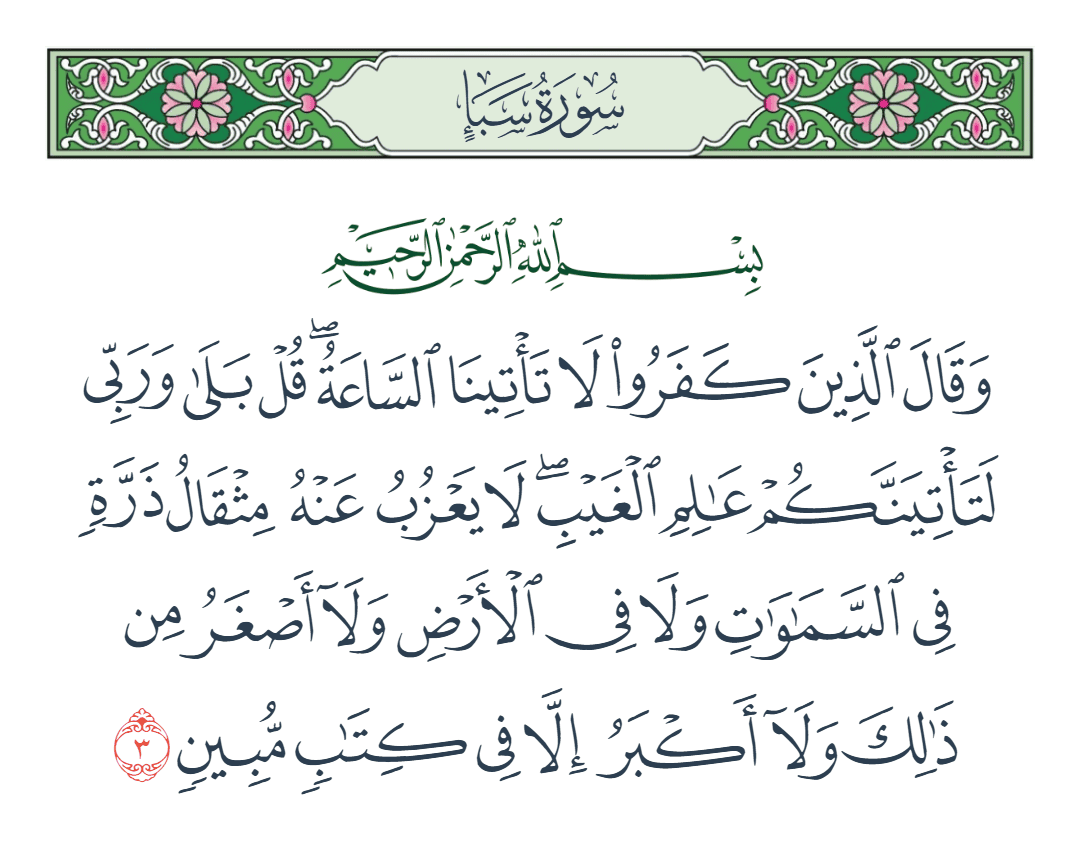 سُورَةُ سَبَإٍ
بِسْمِ ٱللَّهِ ٱلرَّحْمَٰنِ ٱلرَّحِيمِ
وَقَالَ ٱلَّذِينَ كَفَرُوا۟ لَا تَأْتِينَا ٱلسَّاعَةُ ۖ قُلْ بَلَىٰ وَرَبِّى
لَتَأْتِيَنَّكُمْ عَـٰلِمِ ٱلْغَيْبِ ۖ لَا يَعْزُبُ عَنْهُ مِثْقَالُ ذَرَّةٍ
فِى ٱلسَّمَـٰوَٰتِ وَلَا فِى ٱلْأَرْضِ وَلَآ أَصْغَرُ مِن
ذَٰلِكَ وَلَآ أَكْبَرُ إِلَّا فِى كِتَـٰبٍ مُّبِينٍ ٣